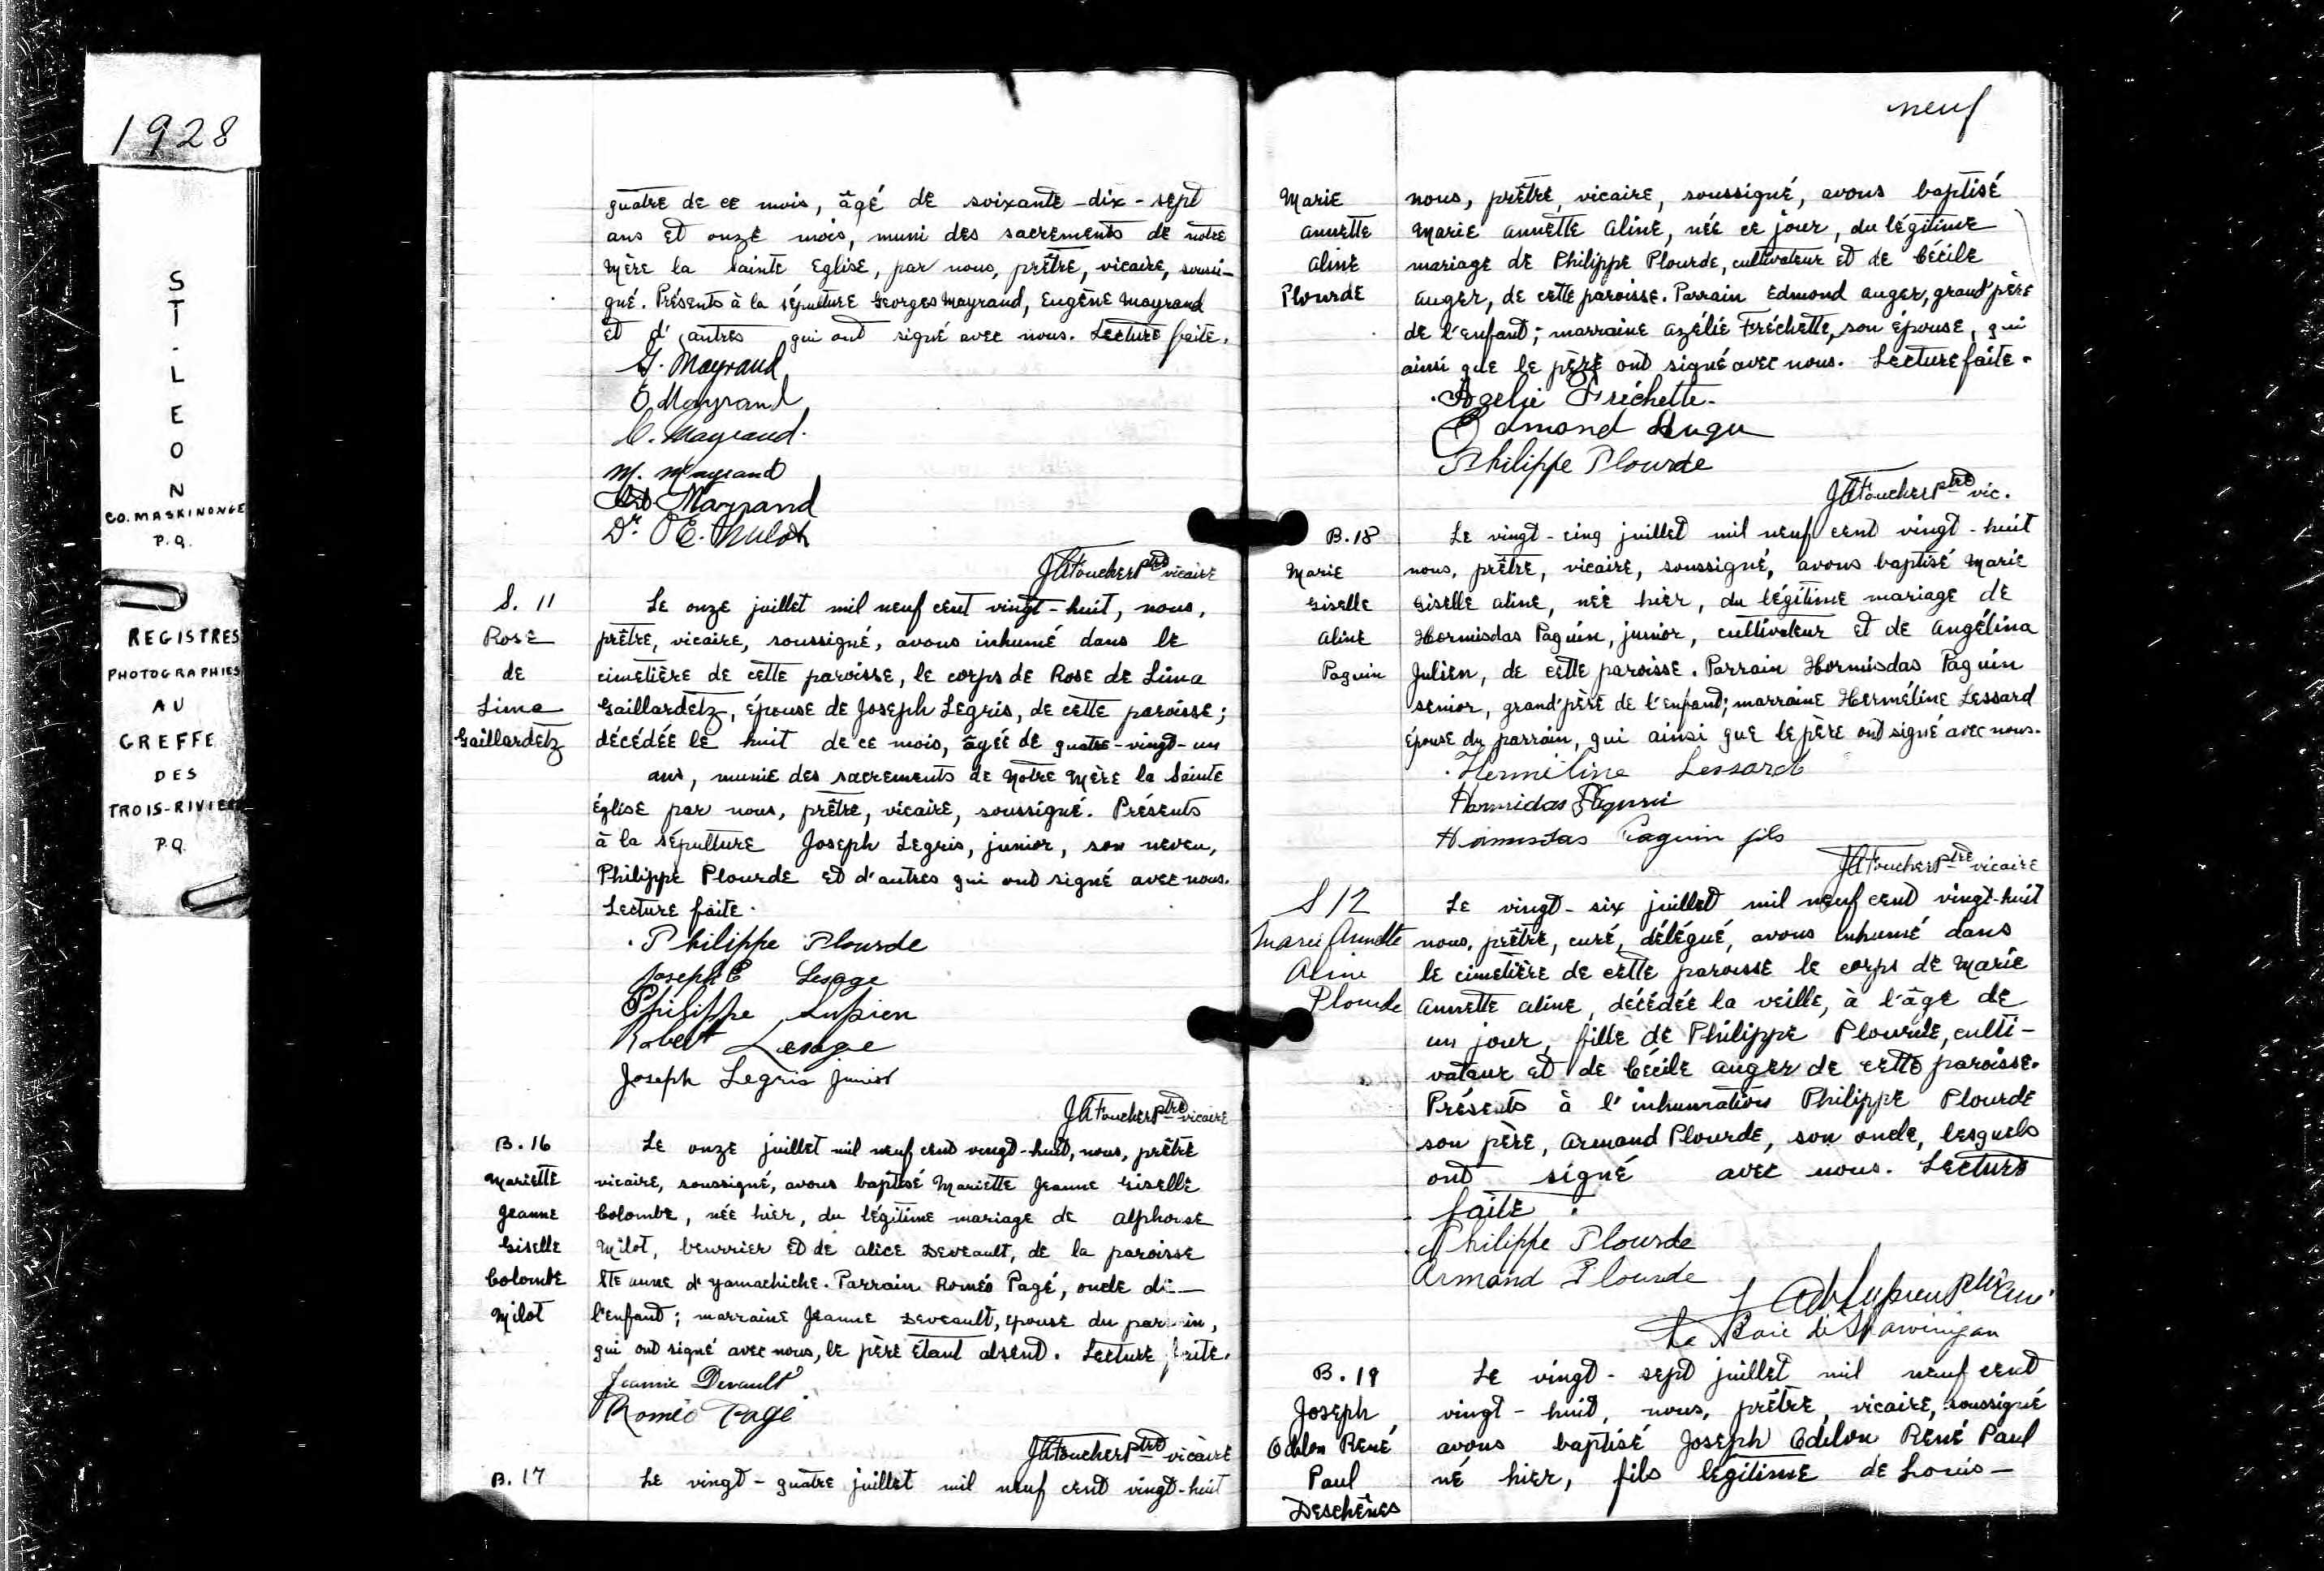 1928
ST.LEON
CO. MASKINONGE
P.Q.
REGISTRES
PHOTOGRAPHIES
AU
GREFFE
DES
TROIS-RIVIERE
P.Q.
quatre de ce mois, âgé de soixante-dix-sept
ans et onze mois, muni des sacrements de notre
Mère la Sainte Eglise, par nous, prêtre, vicaire, soussi-
gné. Présents à la sépulture Georges Mayrand, Eugène Mayrand
et d'autres qui ont signé avec nous. Lecture faite.
G. Mayrand
E. Mayrand
Mayrand.
M. Mayrand
Mayrand
Dr. E. Milot
J A Foucher ptre vicaire
S. 11
Rose
de
Lima
Gaillardetz
Le onze juillet mil neuf cent vingt-huit, nous,
prêtre, vicaire, soussigné, avons inhumé dans le
cimetière de cette paroisse, le corps de Rose de Lima
Gaillardetz, épouse de Joseph Legris, de cette paroisse;
décédée le huit de ce mois, âgée de quatre-vingt-un
ans, munie des sacrements de Notre Mère la Sainte
Église par nous, prêtre, vicaire, soussigné. Présents
à la sépulture Joseph Legris, junior, son neveu,
Philippe Plourde et d'autres qui ont signé avec nous.
Lecture faite.
Philippe Plourde
Joseph E Lesage
Philippe Lupien
Robert Lesage
Joseph Legris Junior
J A Foucher ptre vicaire
B. 16
Mariette
Jeanne
Giselle
Colombe
Milot
Le onze juillet mil neuf cent vingt-huit, nous, prêtre
vicaire, soussigné, avons baptisé Mariette Jeanne Giselle
Colombe, née hier, du légitime mariage de Alphonse
Milot, beurrier et de Alice Deveault, de la paroisse
Ste Anne d'Yamachiche. Parrain Roméo Pagé, oncle de
l'enfant; marraine Jeanne Deveault, épouse du parrain,
qui ont signé avec nous, le père étant absent. Lecture faite.
Jeanne Devault
Roméo Pagé
J A Foucher ptre vicaire
B. 17
Le vingt-quatre juillet mil neuf cent vingt-huit
neuf
Marie
Annette
Aline
Plourde
nous, prêtre, vicaire, soussigné, avons baptisé
Marie Annette Aline, née ce jour, du légitime
mariage de Philippe Plourde, cultivateur et de Cécile
Auger, de cette paroisse. Parrain Edmond Auger, grand'père
de l'enfant; marraine Azélie Fréchette, son épouse, qui
ainsi que le père ont signé avec nous. Lecture faite.
Azelie Fréchette
Edmond Auger
Philippe Plourde
J A Foucher ptre vic.
B. 18
Marie
Giselle
Aline
Paquin
Le vingt-cinq juillet mil neuf cent vingt-huit
nous, prêtre, vicaire, soussigné, avons baptisé Marie
Giselle Aline, née hier, du légitime mariage de
Hormisdas Paquin, junior, cultivateur et de Angélina
Julien, de cette paroisse. Parrain Hormisdas Paquin
senior, grand'père de l'enfant; marraine Herméline Lessard
épouse du parrain, qui ainsi que le père ont signé avec nous.
Herméline Lessard
Hormidas Paquin
Hormisdas Paquin fils
J A Foucher ptre vicaire
S 12
Marie Annette
Aline
Plourde
Le vingt-six juillet mil neuf cent vingt-huit
nous, prêtre, curé, délégué, avons inhumé dans
le cimetière de cette paroisse le corps de Marie
Annette Aline, décédée la veille, à l'âge de
un jour, fille de Philippe Plourde, culti-
vateur et de Cécile Auger de cette paroisse.
Présents à l'inhumation Philippe Plourde
son père, Armand Plourde, son oncle, lesquels
ont signé avec nous. Lecture
faite.
Philippe Plourde
Armand Plourde
Lupien ptre curé
Baie de Shawinigan
B. 19
Joseph
Odilon René
Paul
Deschênes
Le vingt-sept juillet mil neuf cent
vingt-huit, nous, prêtre, vicaire, soussigné
avons baptisé Joseph Odilon René Paul
né hier, fils légitime de Louis-